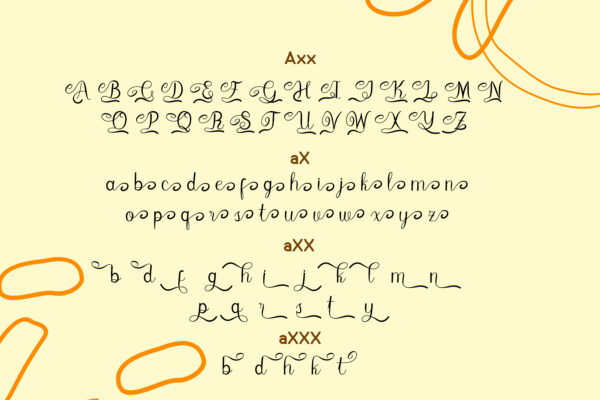 Axx
A B C D E F G H I J K L M N
O P Q R S T U V W X Y Z
aX
a b c d e f g h i j k l m n
o p q r s t u v w x y z
aXX
b d f g h i j k l m n
p q r s t y
aXXX
b d h k t